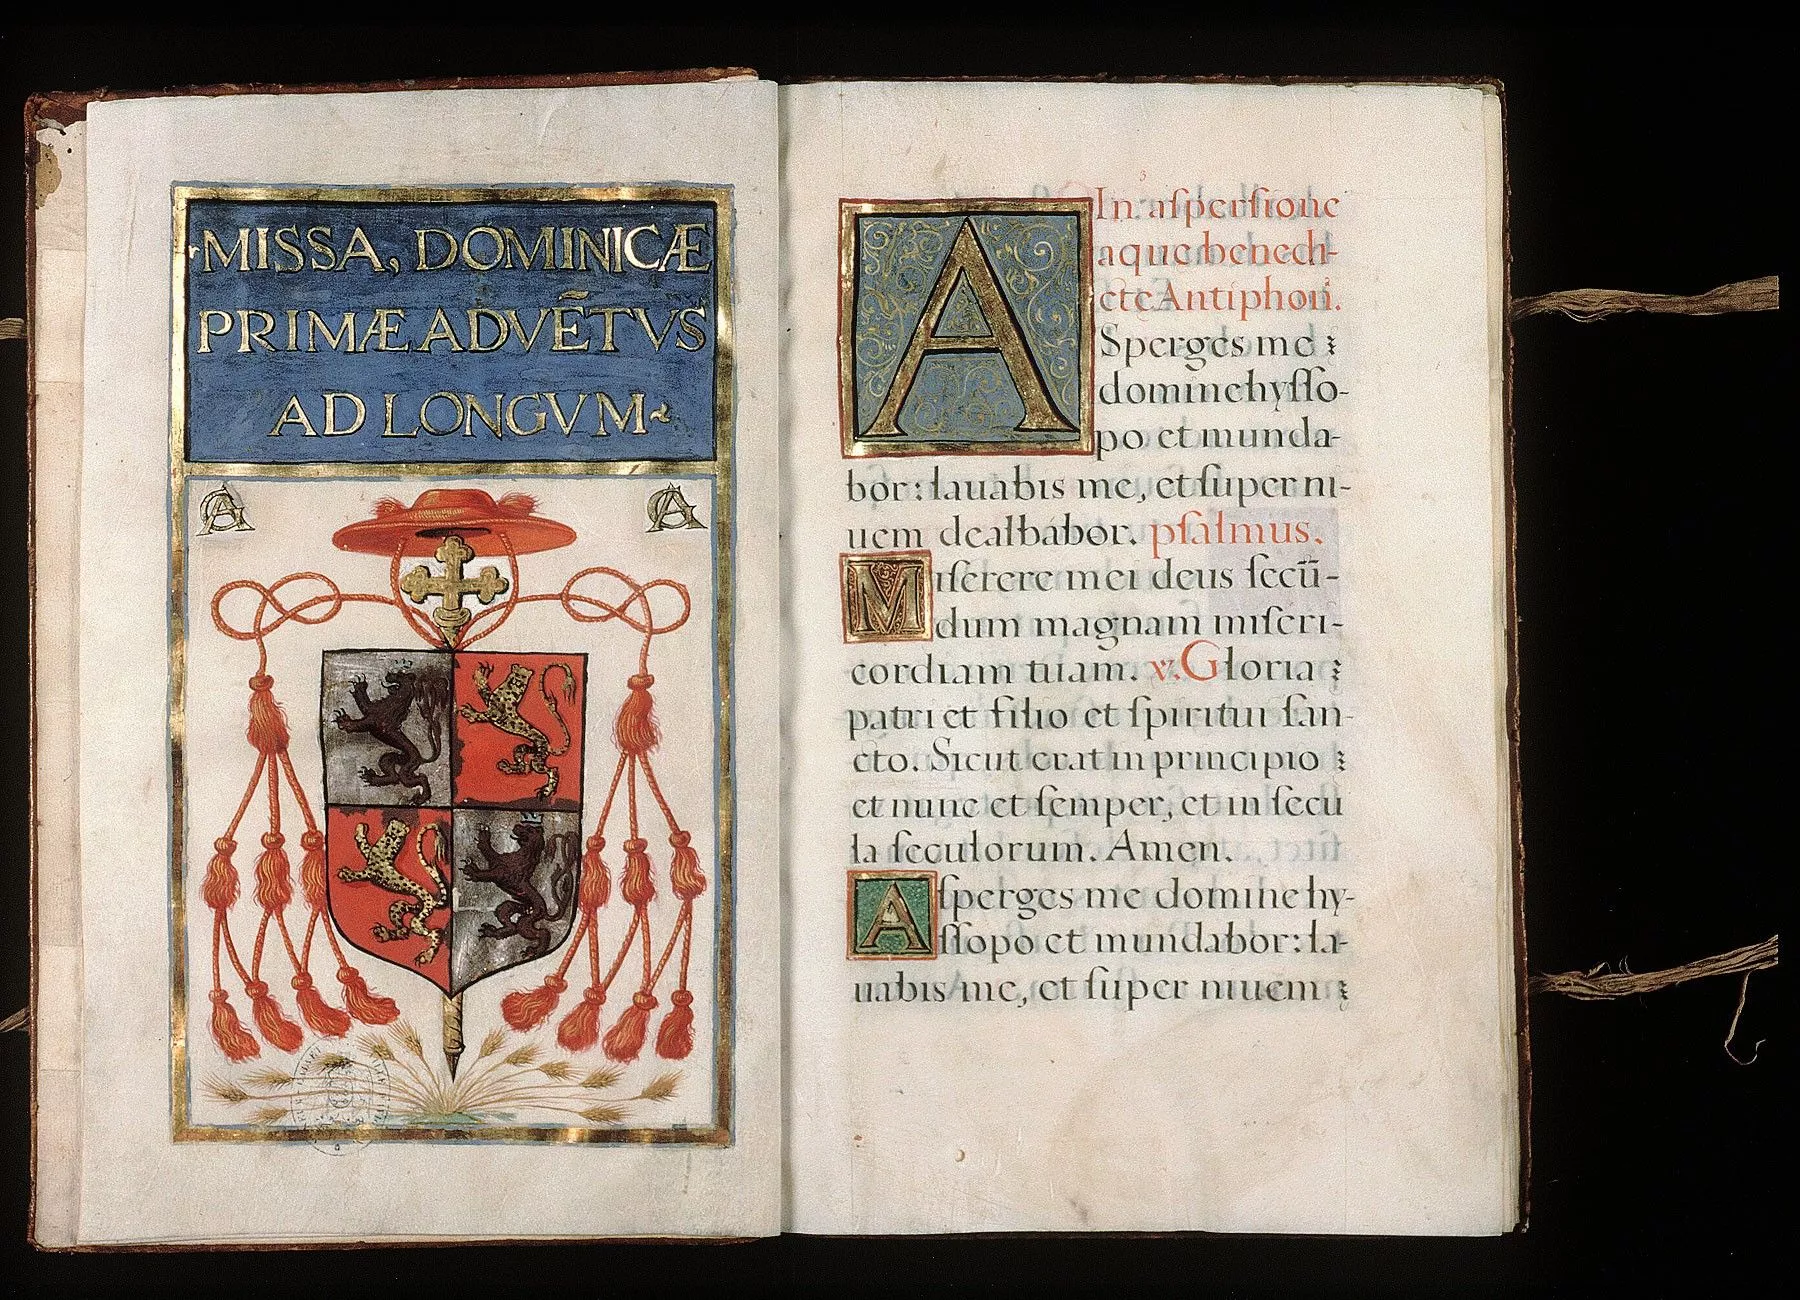 MISSA, DOMINICÆ
PRIMÆ ADVĒTVS
AD LONGVM
3
In aſperſione
aque benedi-
cte Antiphon.
ASperges me
domine hyſſo-
po et munda-
bor: lauabis me, et ſuper ni-
uem dealbabor. pſalmus.
Miſerere mei deus ſecū-
dum magnam miſeri-
cordiam tuam. v. Gloria
patri et filio et ſpiritui ſan-
cto. Sicut erat in principio
et nunc et ſemper, et in ſecu
la ſeculorum. Amen.
Aſperges me domine hy-
ſſopo et mundabor: la-
uabis me, et ſuper niuem